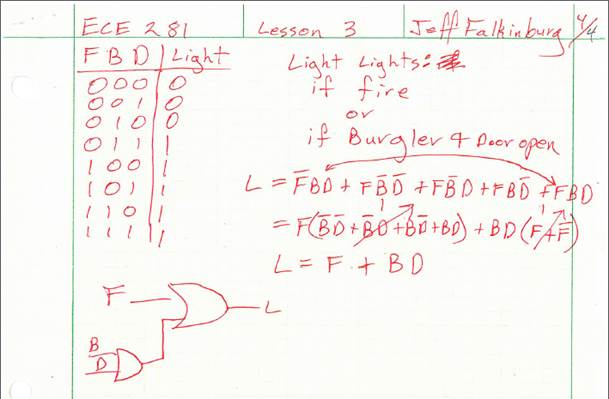 ECE 281 Lesson 3 Jeff Falkinburg 4/4
F B D Light
0 0 0 0
0 0 1 0
0 1 0 0
0 1 1 1
1 0 0 1
1 0 1 1
1 1 0 1
1 1 1 1
Light Lights:
if fire
or
if Burgler & Door open
L = F̅BD + FB̅D̅ + FB̅D + FBD̅ + FBD
= F(B̅D̅ + B̅D + BD̅ + BD) + BD(F + F̅)
1 1
L = F + BD
F L
B
D